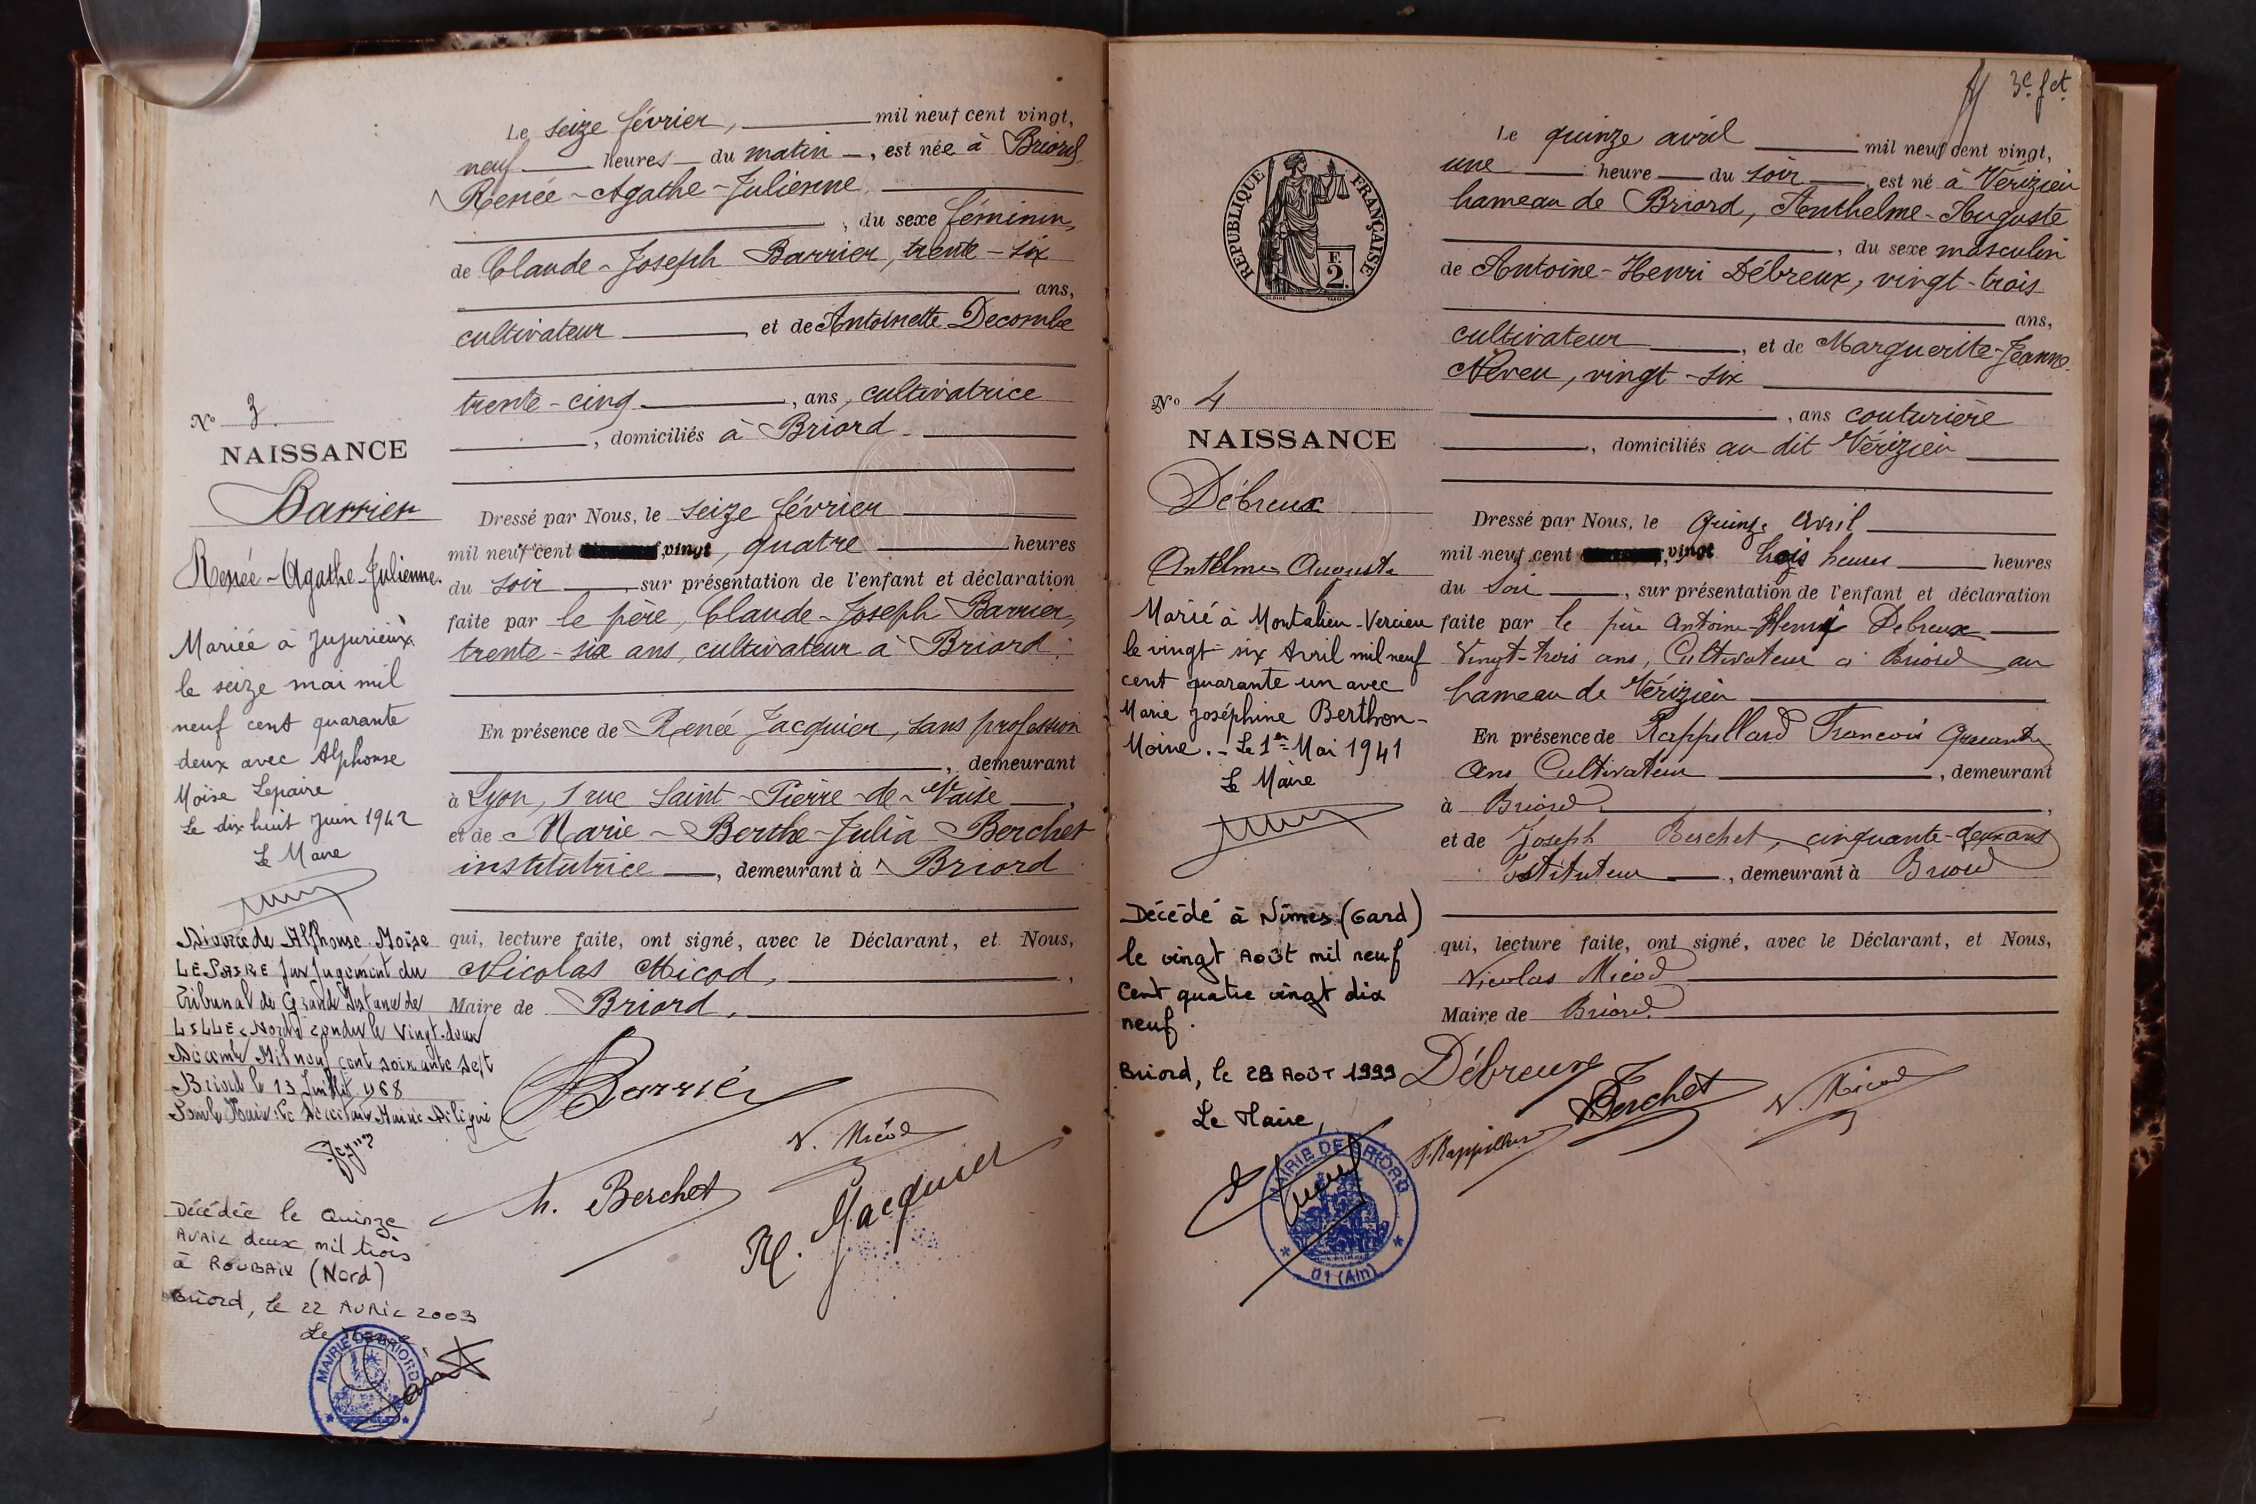 Le seize février, mil neuf cent vingt,
neuf heures du matin, est née à Briord
Renée-Agathe-Julienne
, du sexe féminin,
de Claude-Joseph Barrier, trente-six
ans,
cultivateur, et de Antoinette Decombe
trente-cinq, ans, cultivatrice
, domiciliés à Briord
Nº 3.
NAISSANCE
Barrier
Renée-Agathe-Julienne.
Mariée à Jujurieux
le seize mai mil
neuf cent quarante
deux avec Alphonse
Moïse Lepaire
Le dix huit Juin 1942
Le Maire
Divorcée de Alphonse Moïse
LEPAIRE par Jugement du
Tribunal de Grande Instance de
LILLE (Nord) rendu le Vingt-deux
Décembre Mil neuf cent soixante sept
Briord le 13 Juillet 1968
Décédée le Quinze
AVRIL deux mil trois
à ROUBAIX (Nord)
Briord, le 22 AVRIL 2003
Le Maire
MAIRIE DE BRIORD
Dressé par Nous, le seize février
mil neuf cent vingt, quatre heures
du soir, sur présentation de l'enfant et déclaration
faite par le père, Claude-Joseph Barrier,
trente-six ans, cultivateur à Briord.
En présence de Renée Jacquier, sans profession
, demeurant
à Lyon, 1 rue Saint-Pierre-de-Vaise,
et de Marie-Berthe-Julia Berchet
institutrice, demeurant à Briord
qui, lecture faite, ont signé, avec le Déclarant, et Nous,
Nicolas Micod,
Maire de Briord.
Barrier
N. Micod
M. Berchet
R. Jacquier
3e fet
Le quinze avril mil neuf cent vingt,
une heure du soir est né à Vérizieu
hameau de Briord, Anthelme-Auguste
, du sexe masculin
de Antoine-Henri Débreux, vingt-trois
ans,
cultivateur, et de Marguerite-Jeanne
Neveu, vingt-six
, ans couturière
, domiciliés au dit Vérizieu
RÉPUBLIQUE FRANÇAISE
F.
2.
Nº 4
NAISSANCE
Débreux
Antelme Auguste
Marié à Montalieu-Vercieu
le vingt-six Avril mil neuf
cent quarante un avec
Marie Joséphine Berthon-
Moine. - Le 1er Mai 1941
Le Maire
Décédé à Nîmes (Gard)
le vingt AOÛT mil neuf
Cent quatre vingt dix
neuf.
Briord, le 28 AOÛT 1999
Le Maire,
MAIRIE DE BRIORD
01 (Ain)
Dressé par Nous, le Quinze Avril
mil neuf cent vingt trois heures heures
du Soir, sur présentation de l'enfant et déclaration
faite par le père Antoine-Henri Debreux
Vingt-trois ans, Cultivateur à Briord au
hameau de Vérizieu
En présence de Rappillard Francois Quarante
Ans Cultivateur, demeurant
à Briord,
et de Joseph Berchet, cinquante-deux ans
Instituteur, demeurant à Briord
qui, lecture faite, ont signé, avec le Déclarant, et Nous,
Nicolas Micod
Maire de Briord.
Débreux
Berchet
N. Micod
F. Rappillard